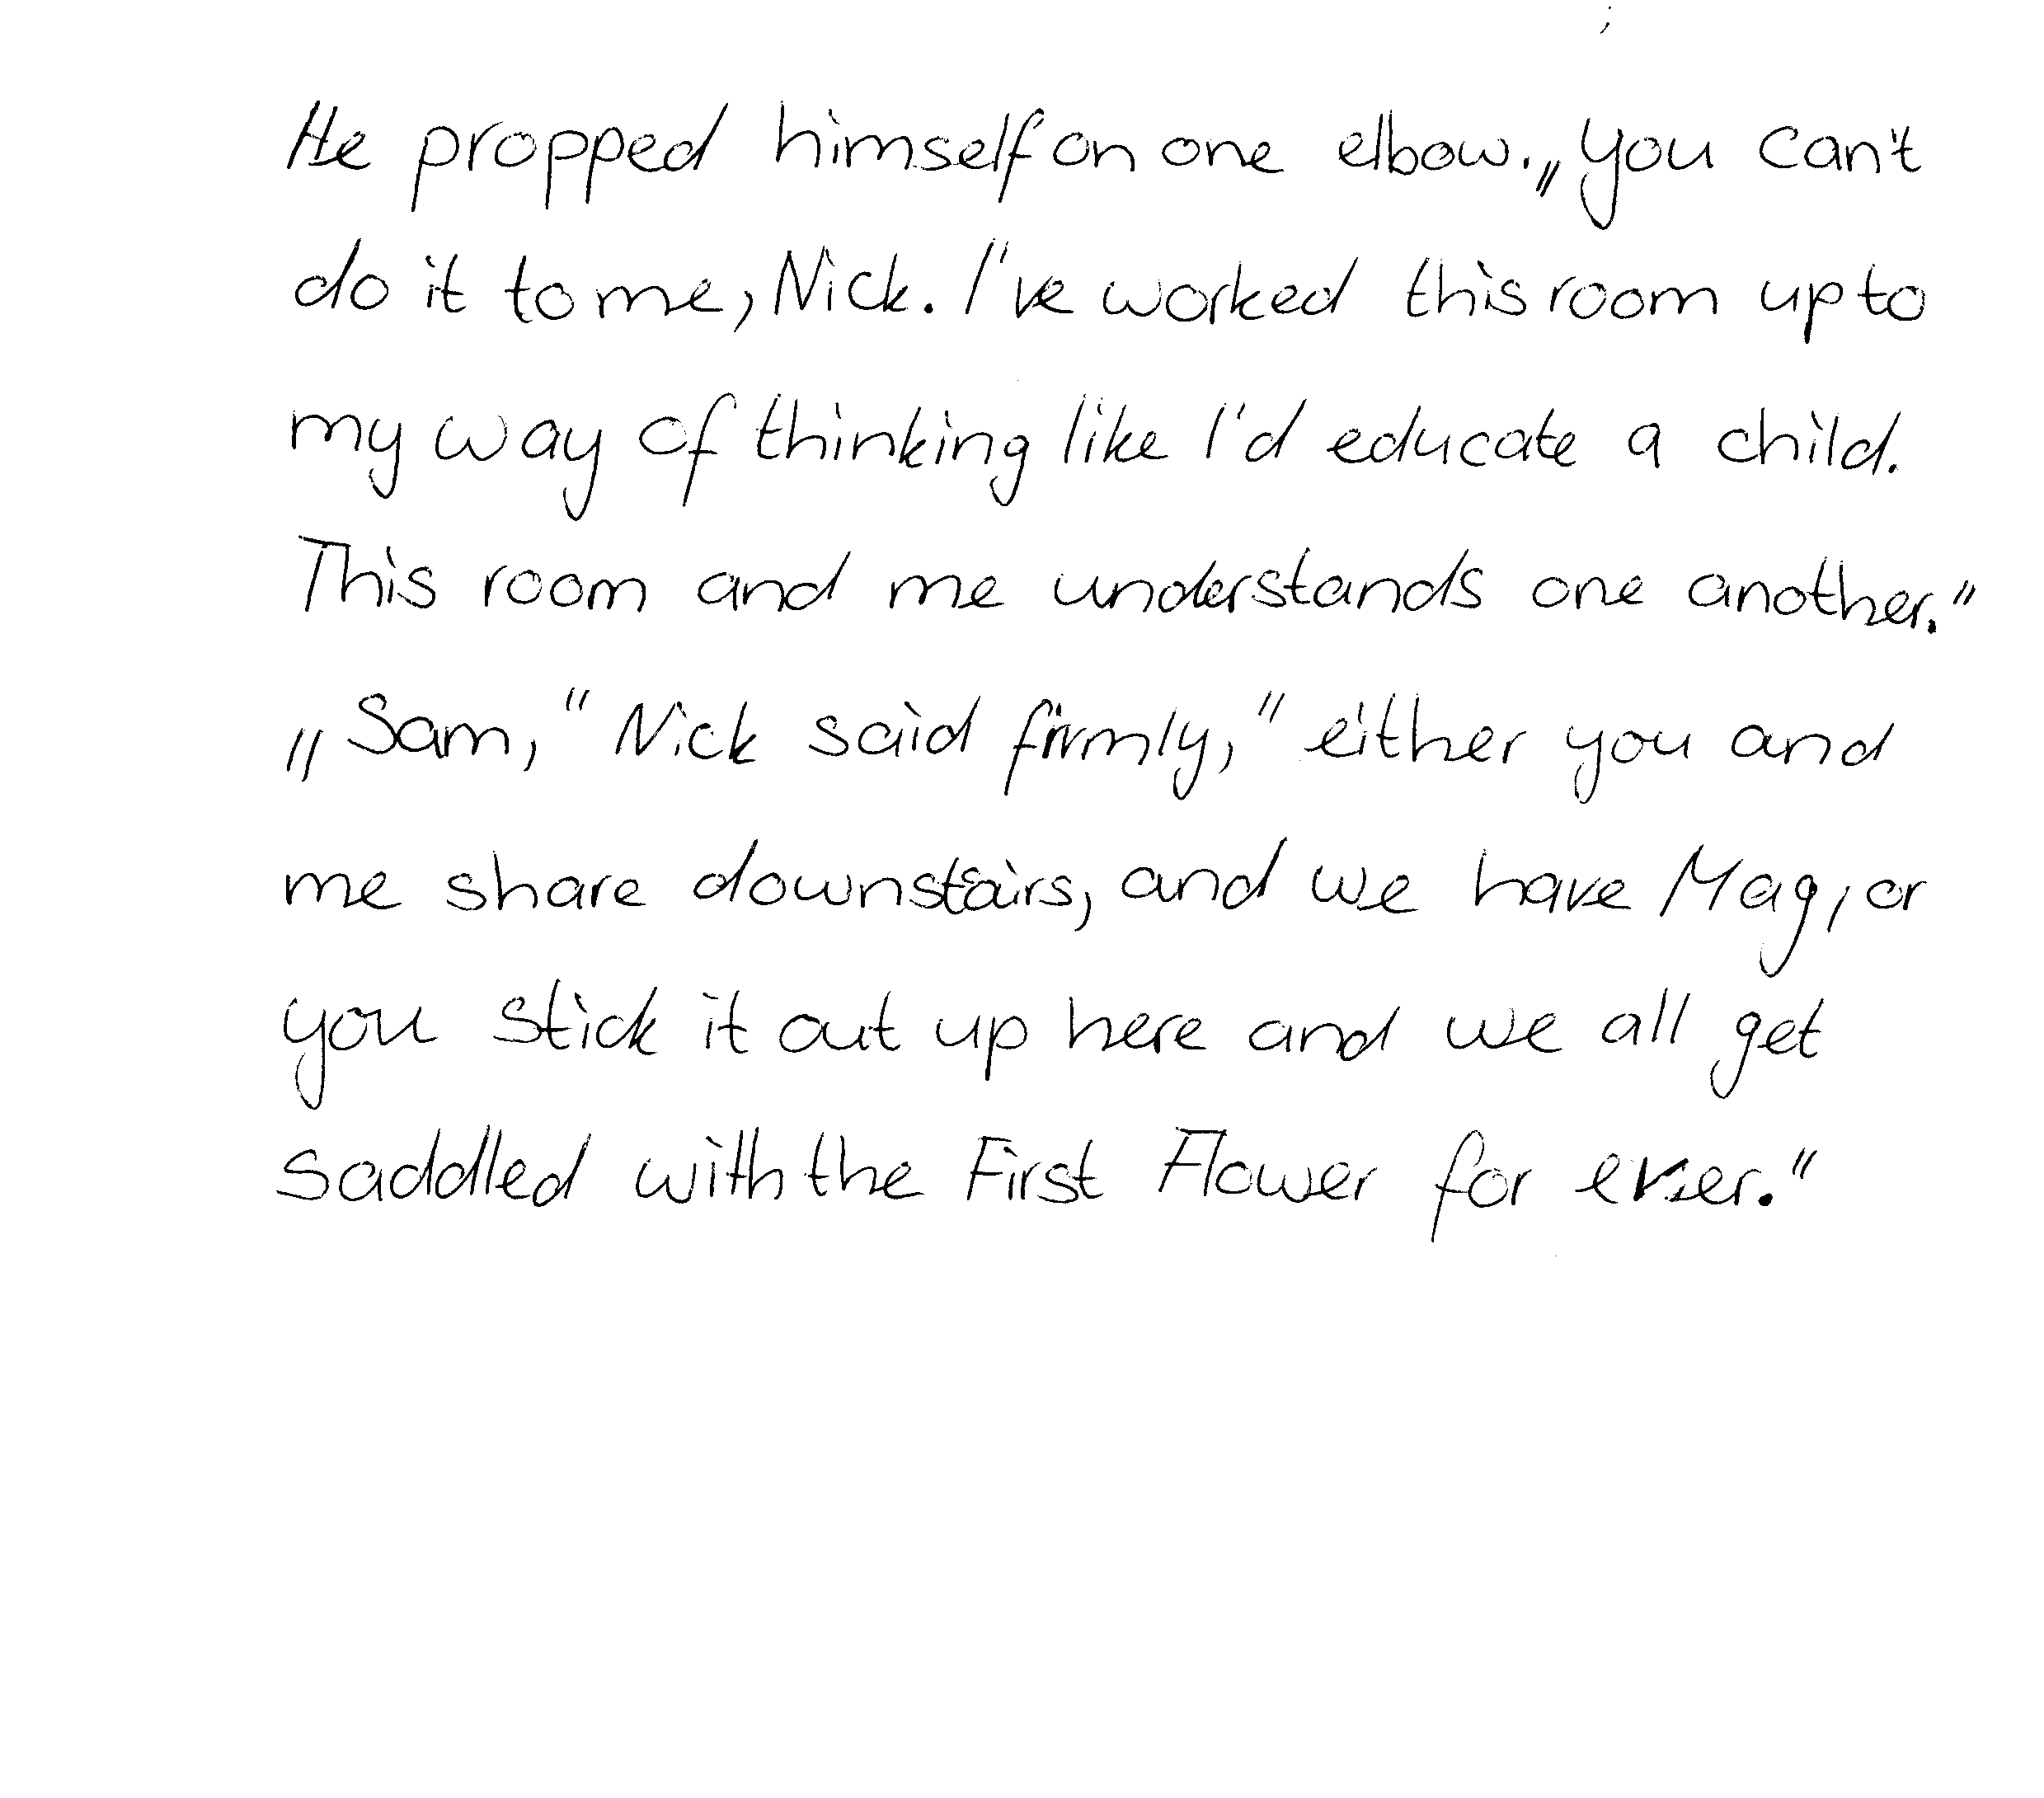 He propped himself on one elbow. „You can't
do it to me, Nick. I've worked this room up to
my way of thinking like I'd educate a child.
This room and me understands one another."
„Sam," Nick said firmly," either you and
me share downstairs, and we have Mag, or
you stick it out up here and we all get
saddled with the First Flower for ever."